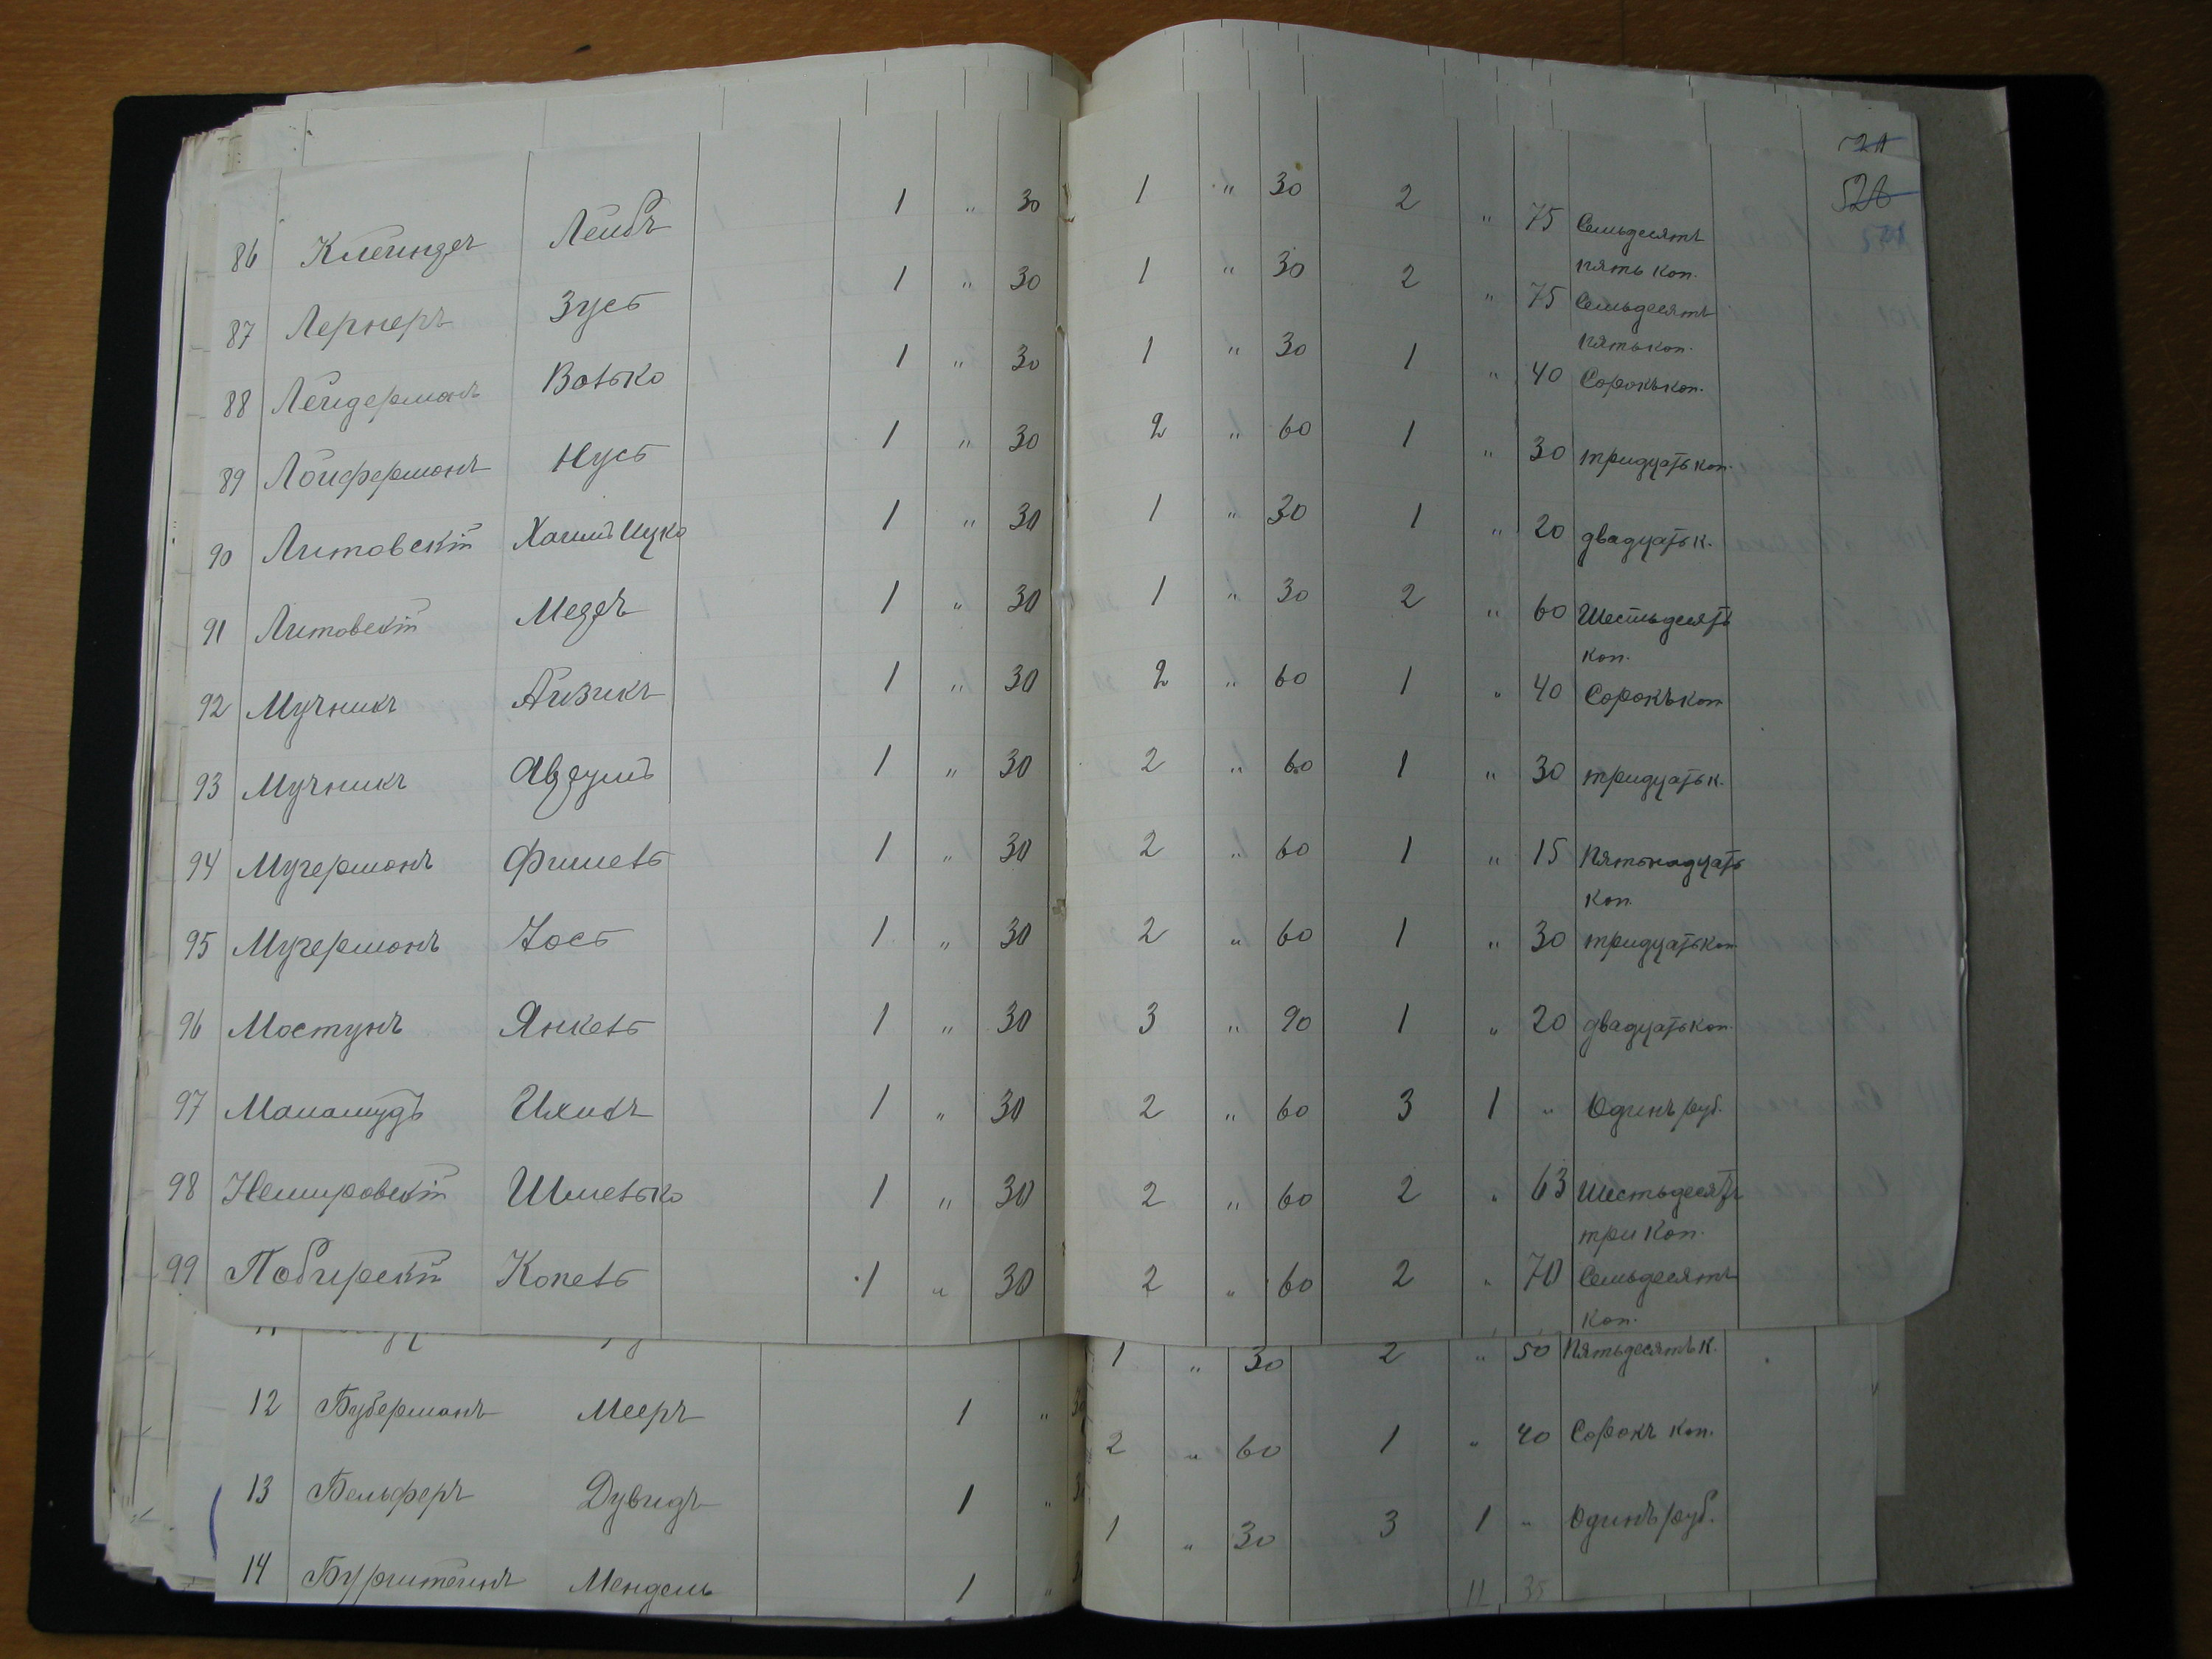 521
526
86 Клейндеч Лейбъ 1 " 30 1 " 30 2 " 75 Семьдесятъ
пять коп.
87 Лернеръ Зусь 1 " 30 1 " 30 2 " 75 Семьдесятъ
пять коп.
88 Лейдерманъ Волько 1 " 30 1 " 30 1 " 40 Сорокъ коп.
89 Лойферманъ Нусь 1 " 30 2 " 60 1 " 30 тридцать коп.
90 Литовскій Хаимъ Ицко 1 " 30 1 " 30 1 " 20 двадцать к.
91 Литовскій 1 " 30 1 " 30 2 " 60 Шестьдесятъ
коп.
92 Мучникъ Айзикъ 1 " 30 2 " 60 1 " 40 Сорокъ коп
93 Мучникъ Авдумъ 1 " 30 2 " 60 1 " 30 тридцать к.
94 Мучерманъ Фишель 1 " 30 2 " 60 1 " 15 Пятьнадцать
коп.
95 Мучерманъ Іось 1 " 30 2 " 60 1 " 30 тридцать коп
96 Мостунъ Янкель 1 " 30 3 " 90 1 " 20 двадцать коп.
97 Маламудъ Ихилъ 1 " 30 2 " 60 3 1 " Одинъ руб.
98 Немировскій Шмелько 1 " 30 2 " 60 2 " 63 Шестьдесятъ
три коп.
99 Побирскій Копель 1 " 30 2 " 60 2 " 70 Семьдесятъ
коп.
1 " 30 2 " 50 Пятьдесятъ к.
12 Буберманъ Мееръ 1 " 30 2 " 60 1 " 40 Сорокъ коп.
13 Бельферъ Дувидъ 1 " 30 1 " 30 3 1 " Одинъ руб.
14 Бурштейнъ Мендель 1 "
11 35